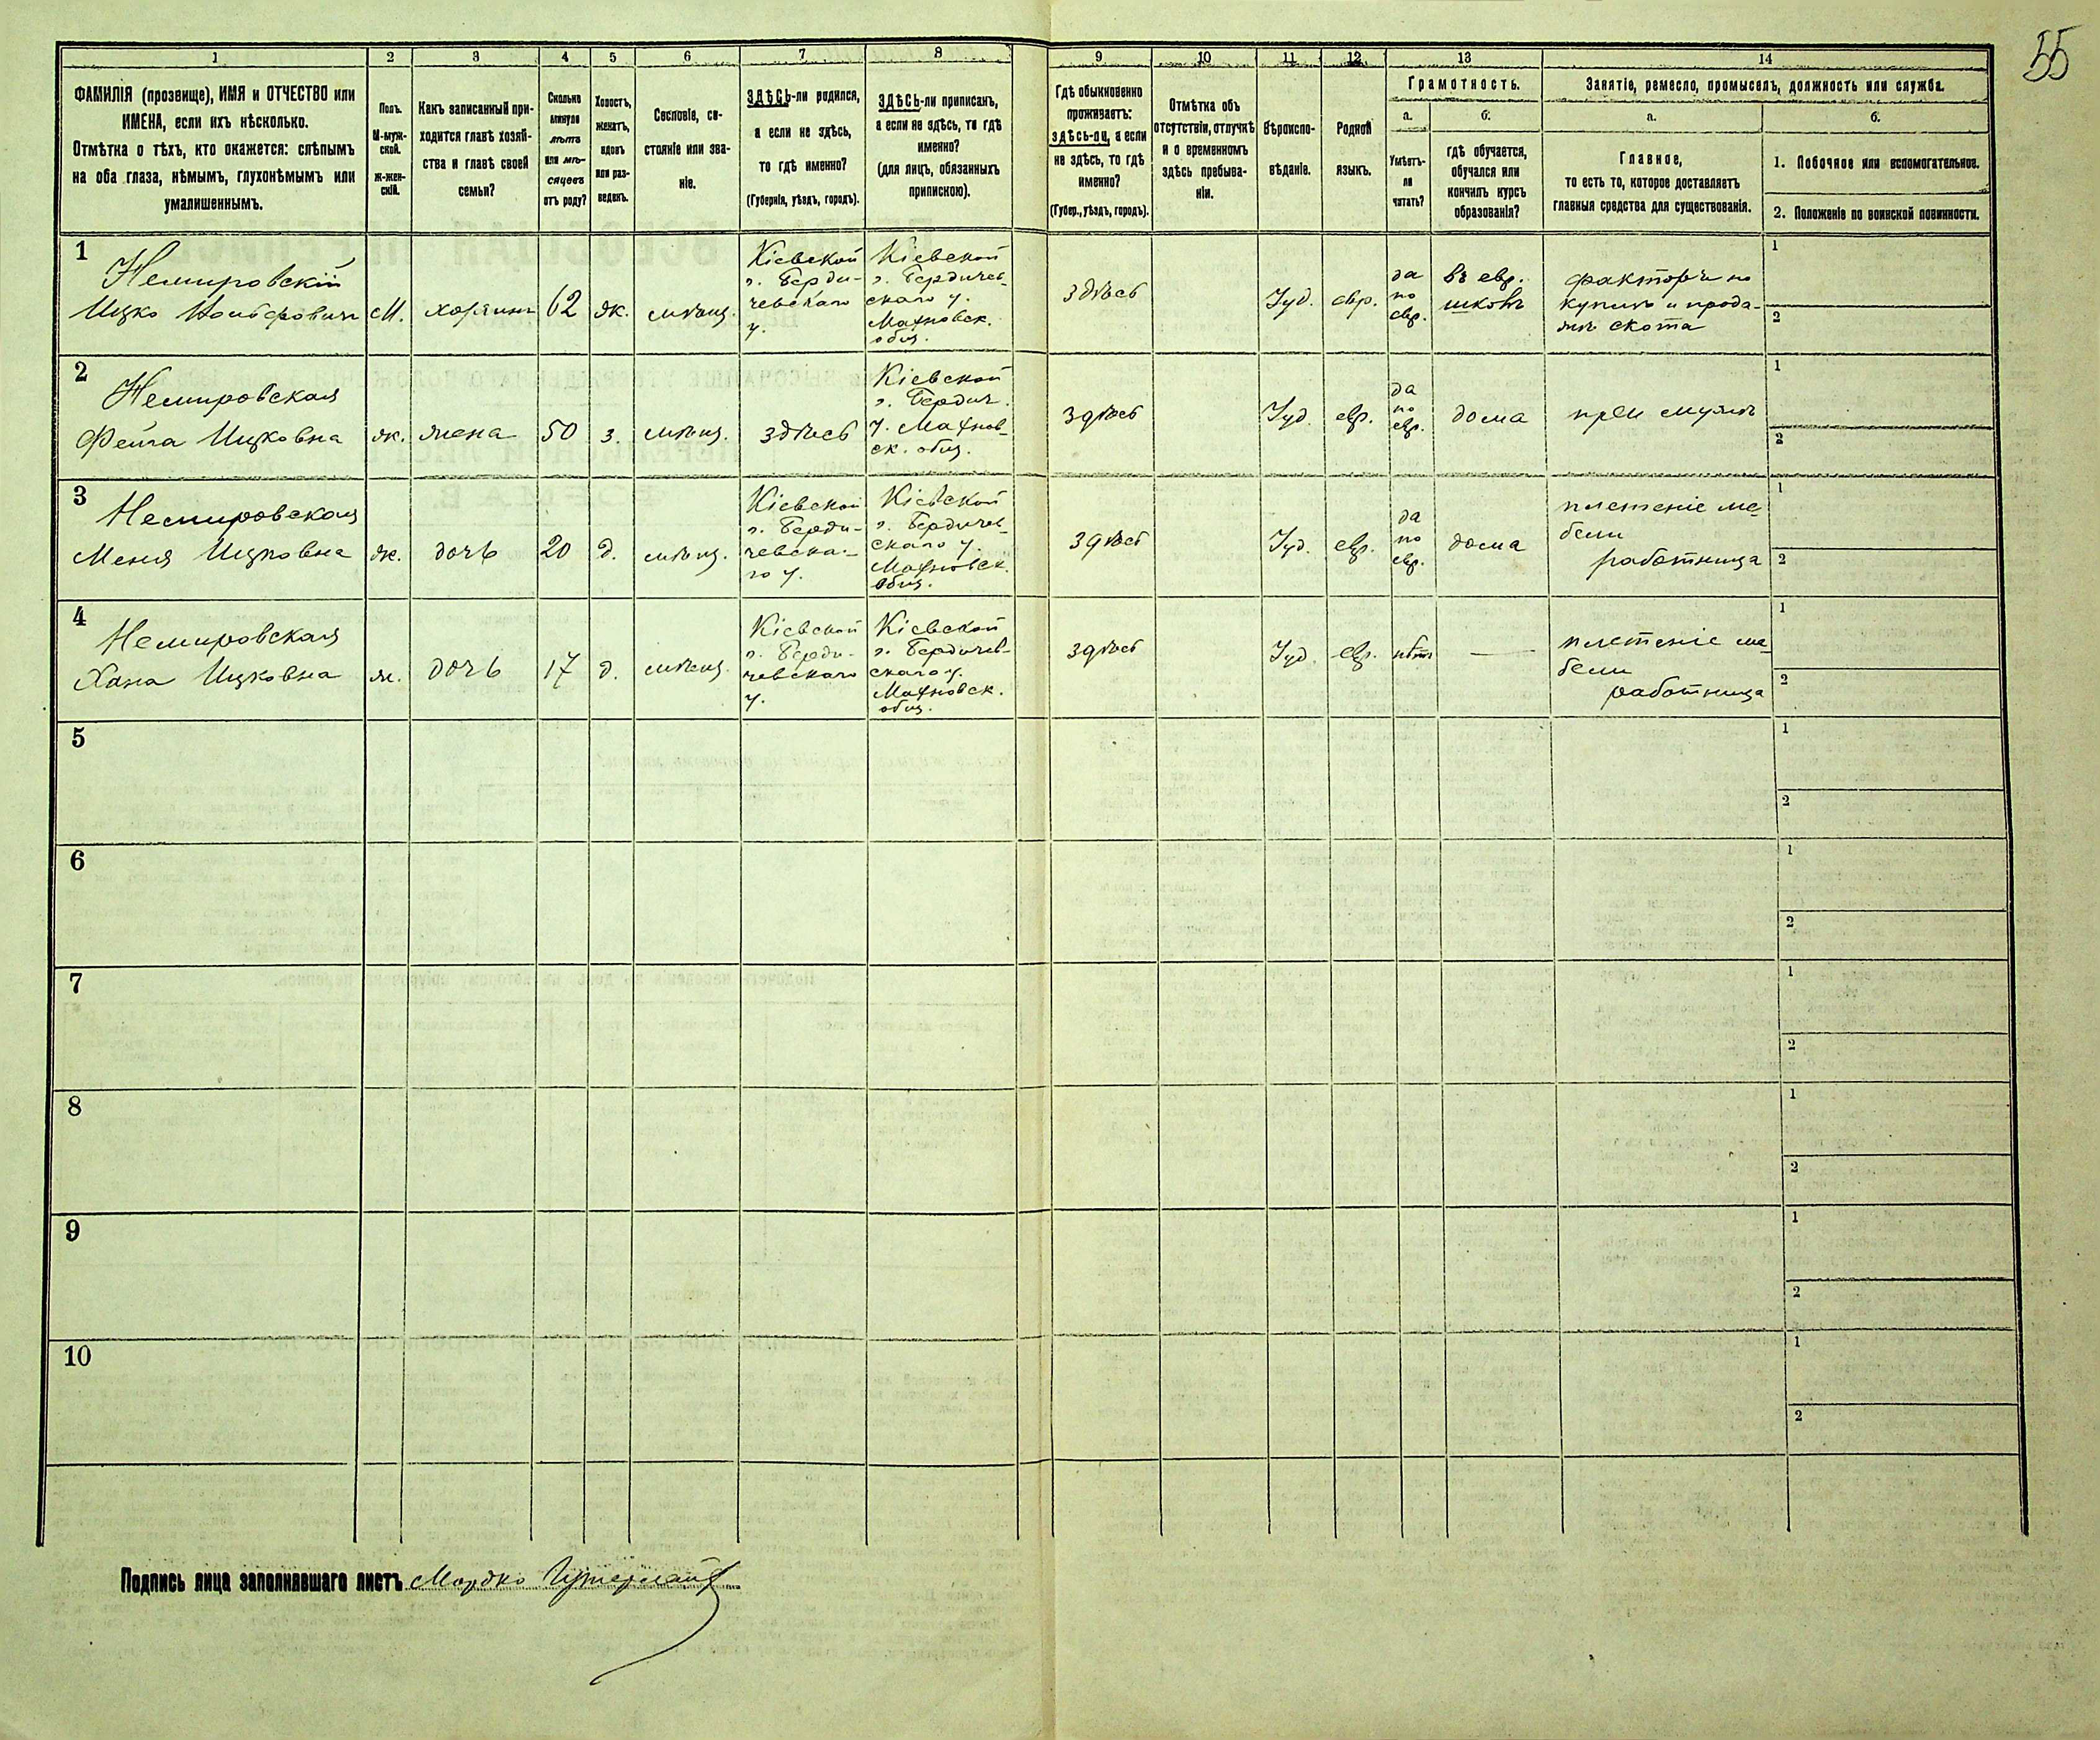 55
1
2
3
4
5
6
7
8
9
10
11
12
13
14
ФАМИЛІЯ (прозвище), ИМЯ и ОТЧЕСТВО или
ИМЕНА, если ихъ нѣсколько.
Отмѣтка о тѣхъ, кто окажется: слѣпымъ
на оба глаза, нѣмымъ, глухонѣмымъ или
умалишеннымъ.
Полъ.
М-муж-
ской.
ж-жен-
скій.
Какъ записанный при-
ходится главѣ хозяй-
ства и главѣ своей
семьи?
Сколько
минуло
лѣтъ
или мѣ-
сяцевъ
отъ роду?
Холостъ,
женатъ,
вдовъ
или раз-
веденъ.
Сословіе, со-
стояніе или зва-
ніе.
ЗДѢСЬ-ли родился,
а если не здѣсь,
то гдѣ именно?
(Губернія, уѣздъ, городъ).
ЗДѢСЬ-ли приписанъ,
а если не здѣсь, то гдѣ
именно?
(для лицъ, обязанныхъ
припискою).
Гдѣ обыкновенно
проживаетъ:
здѣсь-ли, а если
не здѣсь, то гдѣ
именно?
(Губер., уѣздъ, городъ).
Отмѣтка объ
отсутствіи, отлучкѣ
и о временномъ
здѣсь пребыва-
ніи.
Вѣроиспо-
вѣданіе.
Родной
языкъ.
Грамотность.
а.
Умѣетъ-
ли
читать?
б.
гдѣ обучается,
обучался или
кончилъ курсъ
образованія?
Занятіе, ремесло, промыселъ, должность или служба.
а.
Главное,
то есть то, которое доставляетъ
главныя средства для существованія.
б.
1. Побочное или вспомогательное.
2. Положеніе по воинской повинности.
1
Немировскій
Ицко Іосифовичъ
М.
хозяинъ
62
ж.
мѣщ.
Кіевской
г. Берди-
чевскаго
у.
Кіевской
г. Бердичев-
скаго у.
Махновск.
общ.
здѣсь
Іуд.
евр.
да
по
евр.
въ евр.
школѣ
факторъ по
куплѣ и прода-
жѣ скота
1
2
2
Немировская
Фейга Ицковна
ж.
жена
50
з.
мѣщ.
здѣсь
Кіевской
г. Бердич.
у. Махнов-
ск. общ.
здѣсь
Іуд.
евр.
да
по
евр.
дома
при мужѣ
1
2
3
Немировская
Меня Ицковна
ж.
дочь
20
д.
мѣщ.
Кіевской
г. Берди-
чевска-
го у.
Кіевской
г. Бердичев-
скаго у.
Махновск.
общ.
здѣсь
Іуд.
евр.
да
по
евр.
дома
плетеніе ме-
бели
работница
1
2
4
Немировская
Хана Ицковна
ж.
дочь
17
д.
мѣщ.
Кіевской
г. Берди-
чевскаго
у.
Кіевской
г. Бердичев-
скаго у.
Махновск.
общ.
здѣсь
Іуд.
евр.
нѣтъ
—
плетеніе ме-
бели
работница
1
2
5
1
2
6
1
2
7
1
2
8
1
2
9
1
2
10
1
2
Подпись лица заполнявшаго листъ Мордко